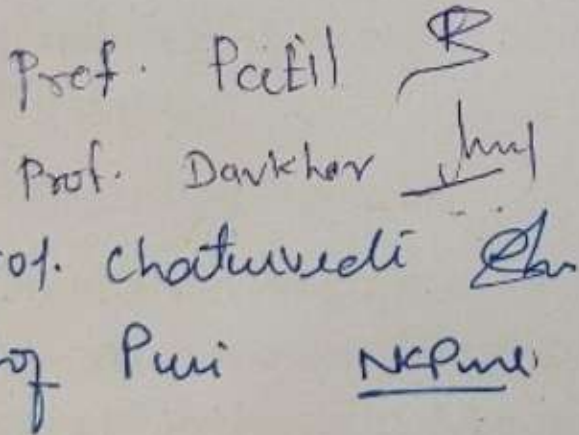 Prof. Patil
Prof. Darkher
of. Chaturvedi
of Puri NKPuri